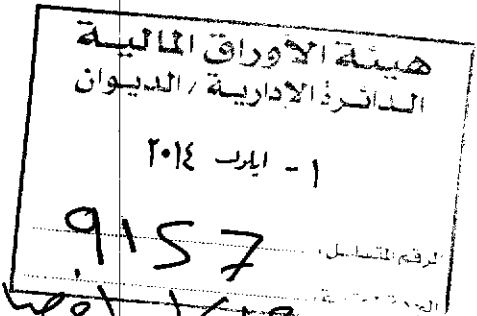 هيئة الأوراق المالية
الدائرة الإدارية / الديوان
١ - ايلول ٢٠١٤
الرقم المتسلسل: 9157